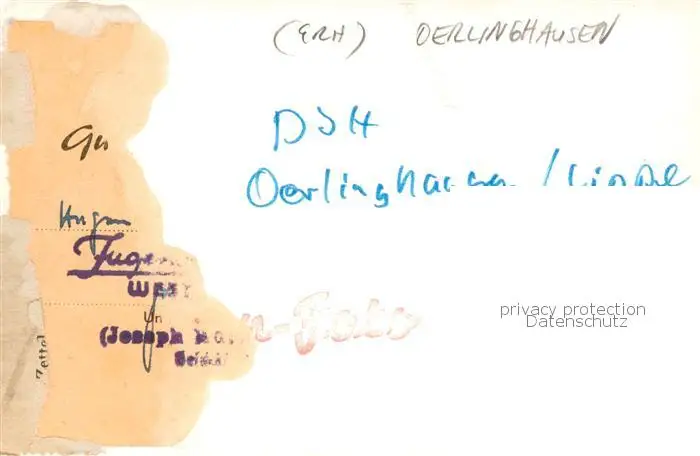 (ERH) OERLINGHAUSEN
DJH
Oerlinghausen / Lippe
Gu
Jugen
WEST
un
(Joseph
Zettel
privacy protection
Datenschutz